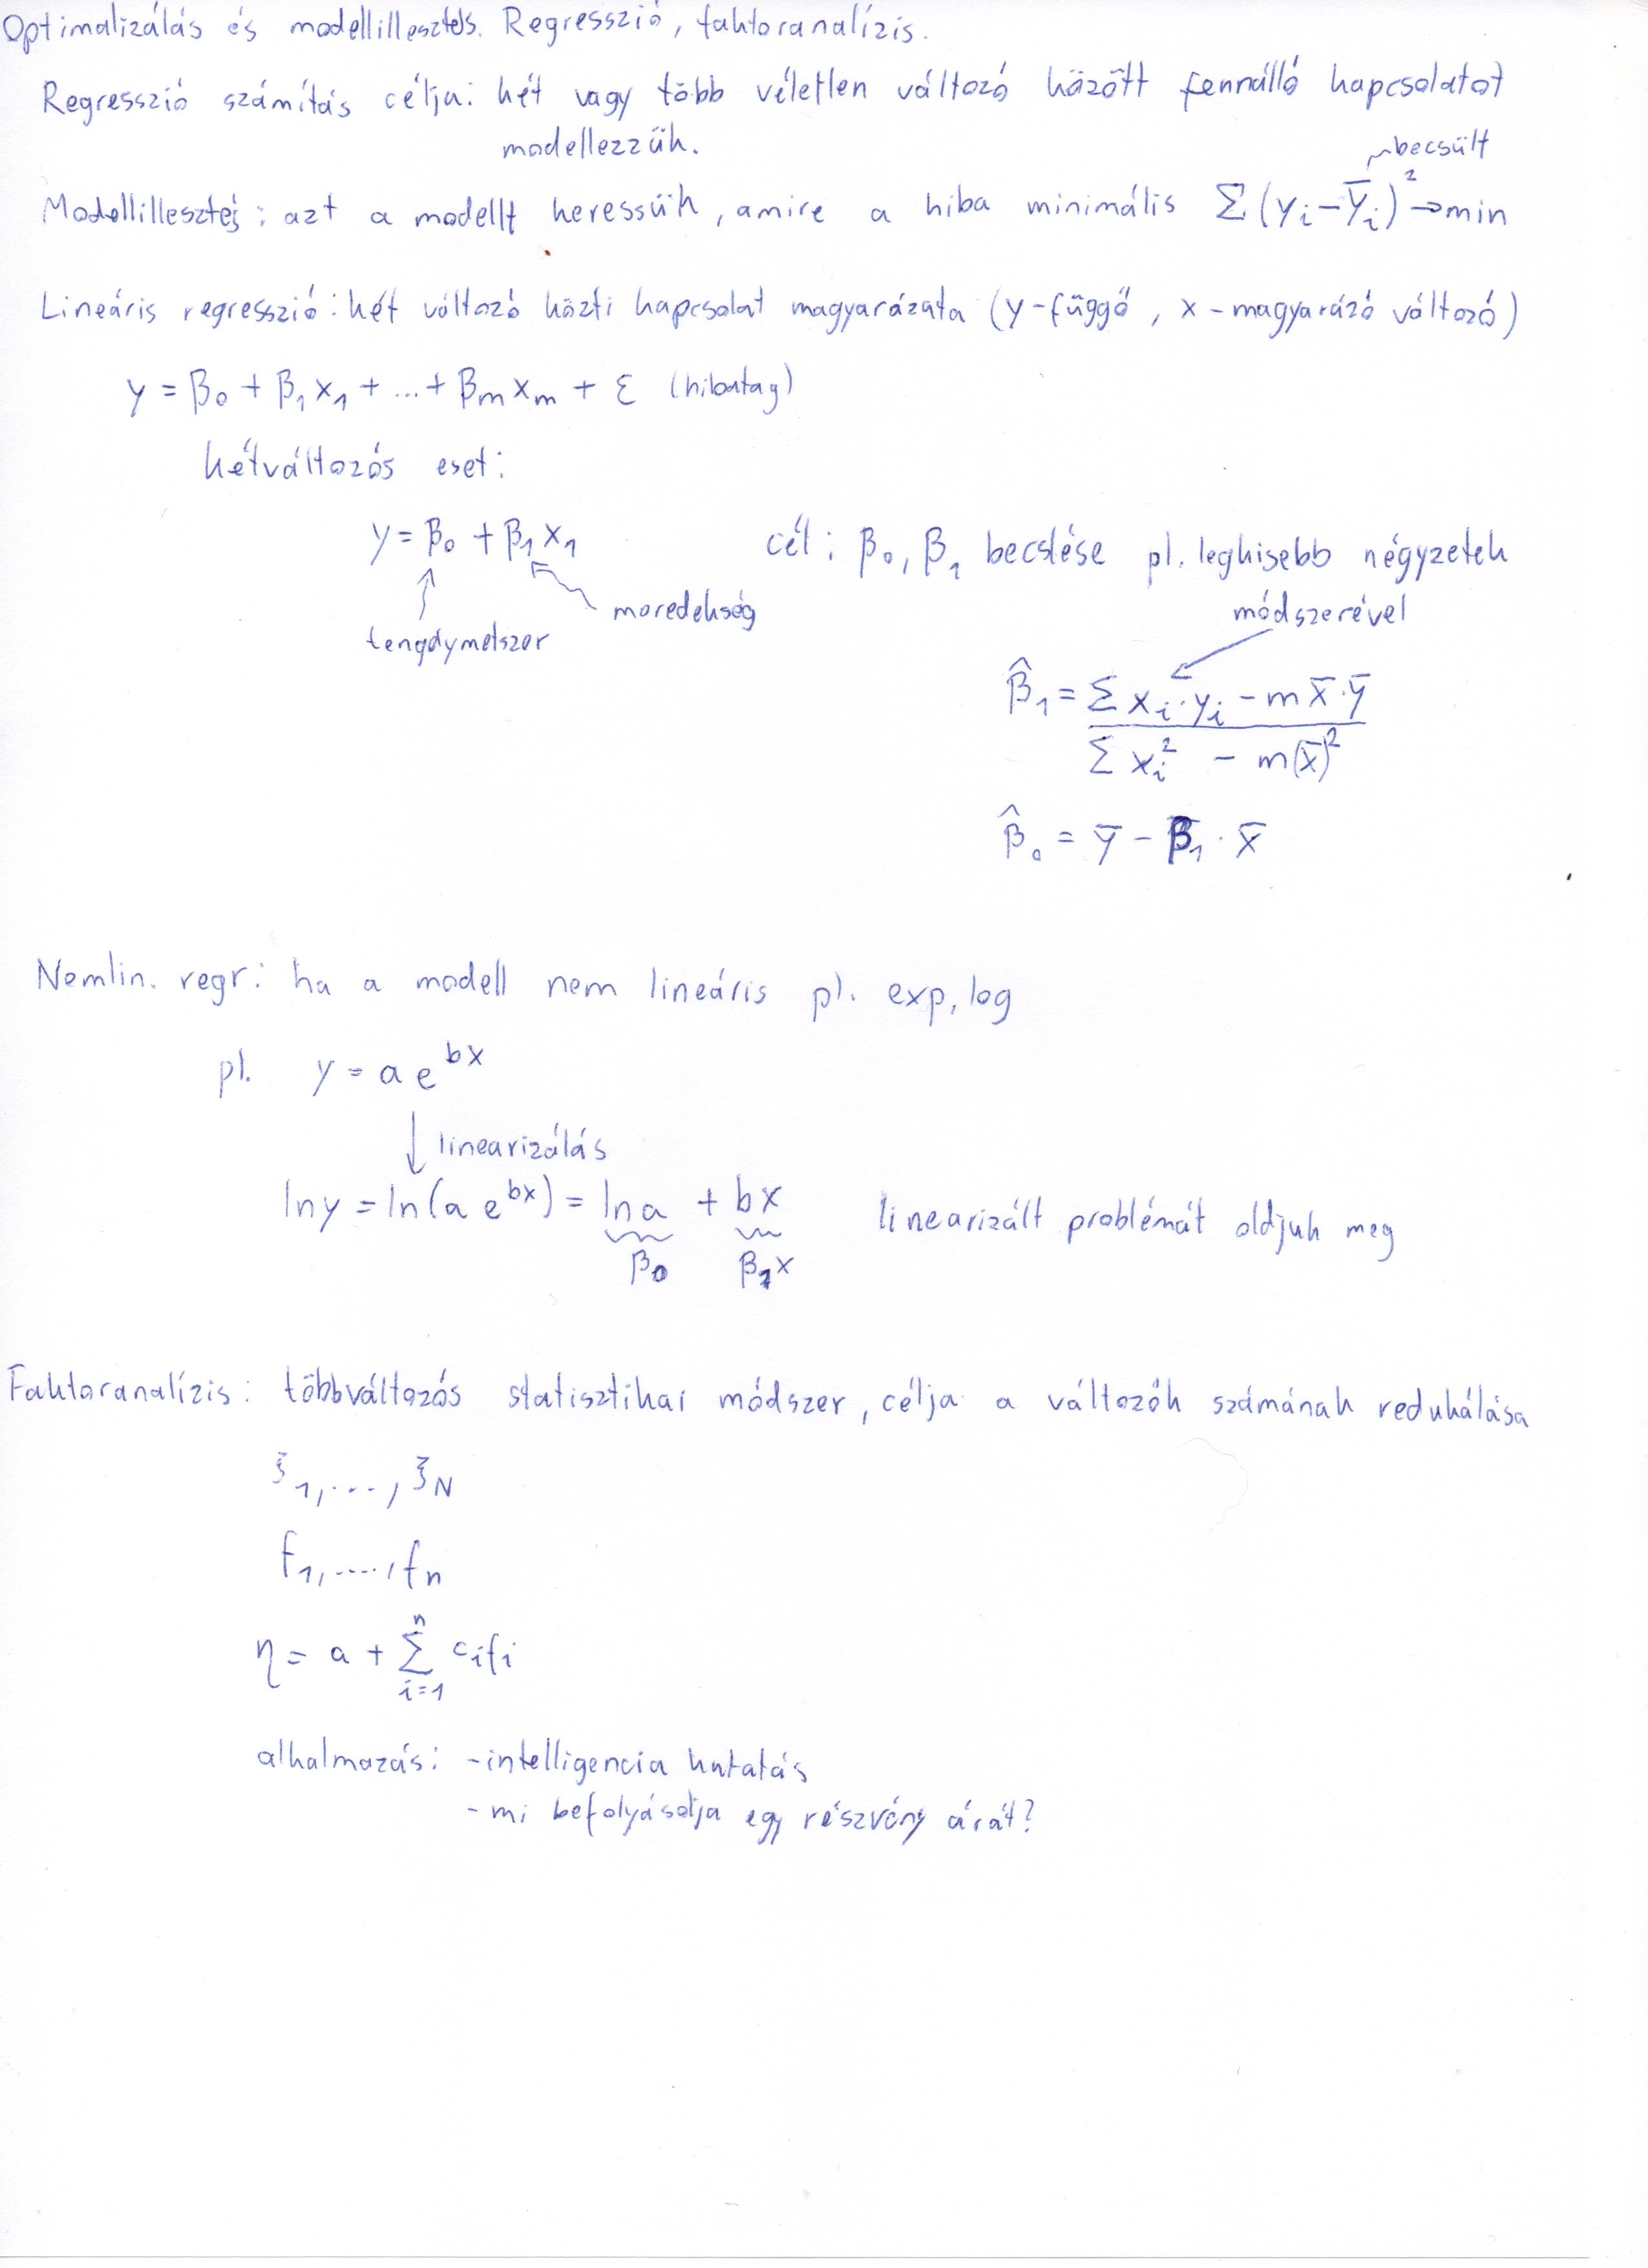 Optimalizálás és modellillesztés. Regresszió, faktoranalízis.
Regresszió számítás célja: két vagy több véletlen változó között fennálló kapcsolatot
modellezzük.
becsült
Modellillesztés: azt a modellt keressük, amire a hiba minimális Σ(yᵢ-ȳᵢ)² → min
Lineáris regresszió: két változó közti kapcsolat magyarázata (y-függő, x-magyarázó változó)
y = β₀ + β₁x₁ + ... + βₘxₘ + ε (hibatag)
kétváltozós eset:
y = β₀ + β₁x₁ cél: β₀, β₁ becslése pl. legkisebb négyzetek
meredekség módszerével
tengelymetszet
β̂₁ = (Σ xᵢ·yᵢ - m x̄·ȳ) / (Σ xᵢ² - m(x̄)²)
β̂₀ = ȳ - β̂₁ · x̄
Nemlin. regr: ha a modell nem lineáris pl. exp, log
pl. y = a e^(bx)
↓ linearizálás
ln y = ln(a e^(bx)) = ln a + bx linearizált problémát oldjuk meg
β₀ β₁x
Faktoranalízis: többváltozós statisztikai módszer, célja a változók számának redukálása
ξ₁, ..., ξ_N
f₁, ...., fₙ
η = a + Σ_(i=1)^n cᵢfᵢ
alkalmazás: - intelligencia kutatás
- mi befolyásolja egy részvény árát?